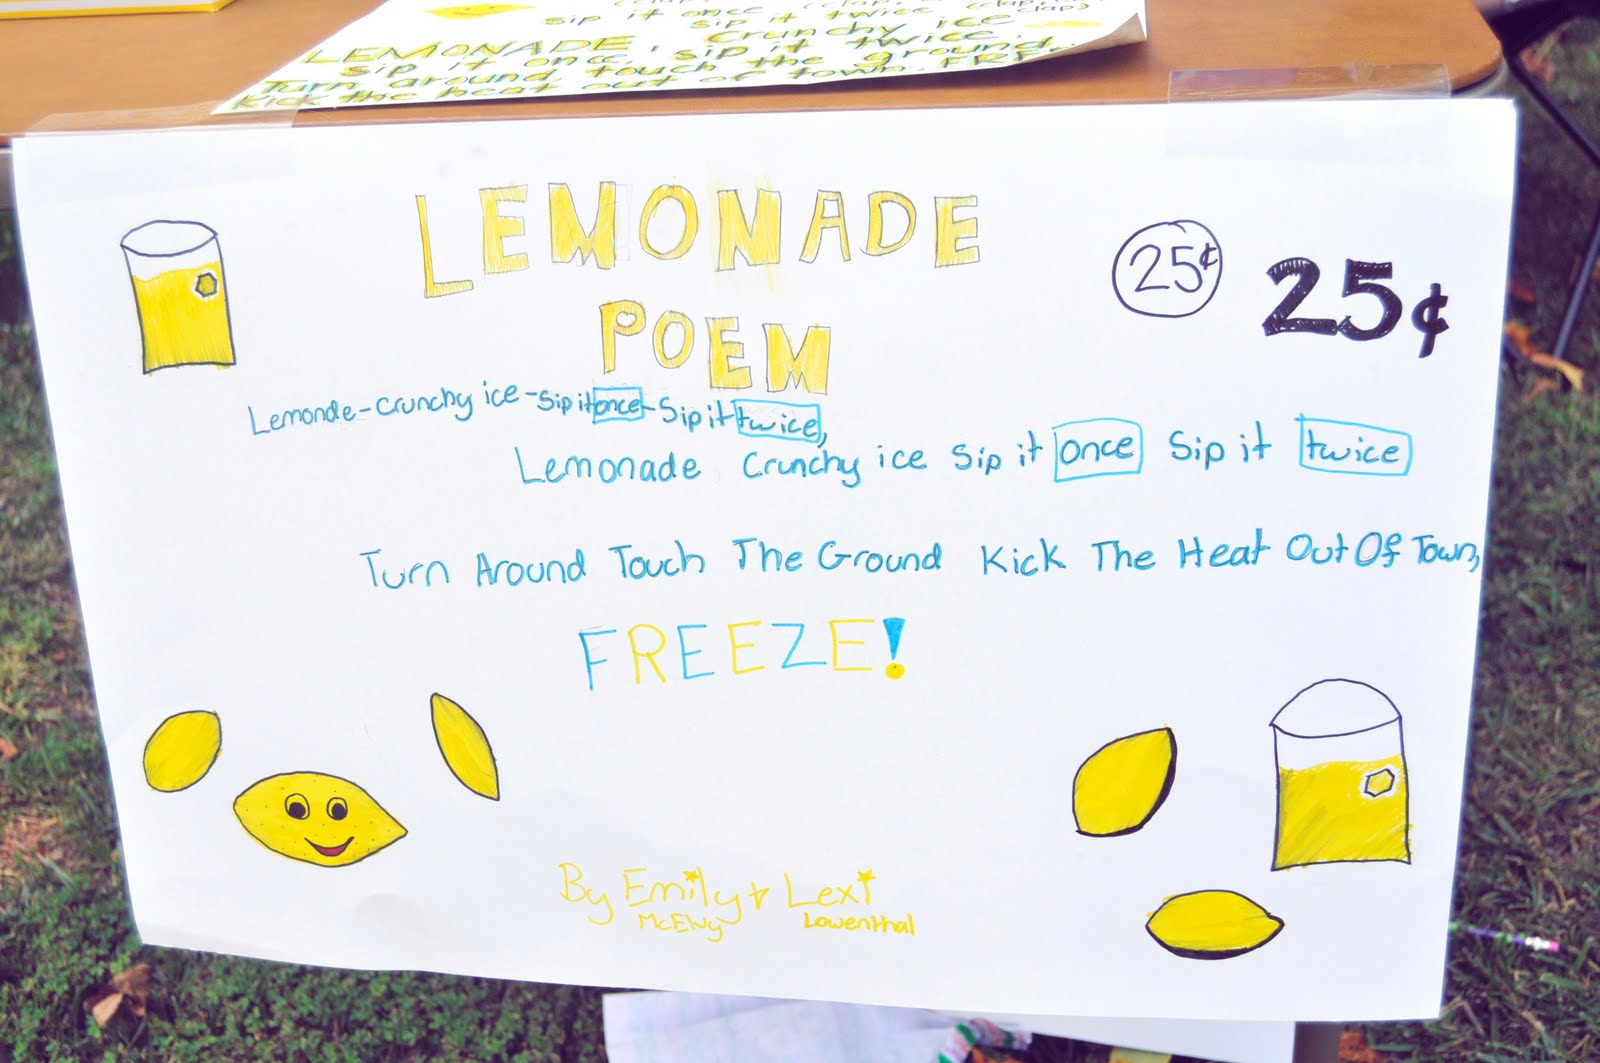 sip it once, sip it twice
LEMONADE, Crunchy ice
sip it once, sip it twice
Turn around, touch the ground
Kick the heat out of town
LEMONADE
POEM
25¢
25¢
Lemonde-Crunchy ice-Sip it once-Sip it twice,
Lemonade Crunchy ice Sip it once Sip it twice
Turn Around Touch The Ground Kick The Heat Out Of Town,
FREEZE!
By Emily + Lexi
McElvy Lowenthal